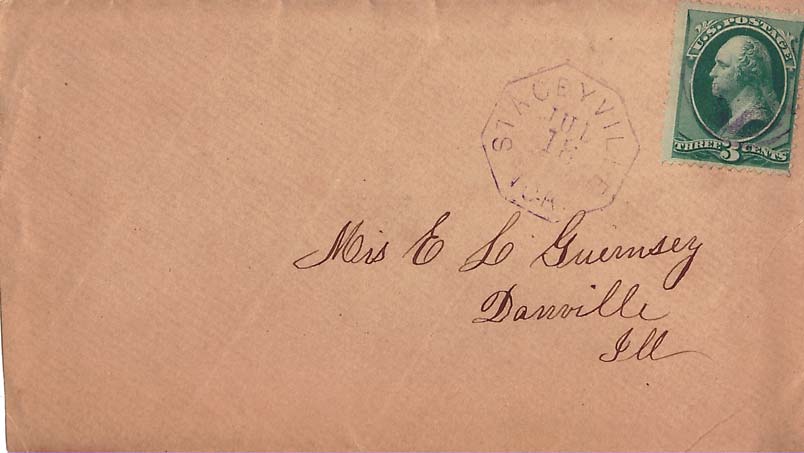 U.S. POSTAGE
THREE 3 CENTS
STACEYVILLE
JUL
15
IOA.
Mis E L Guernsey
Danville
Ill